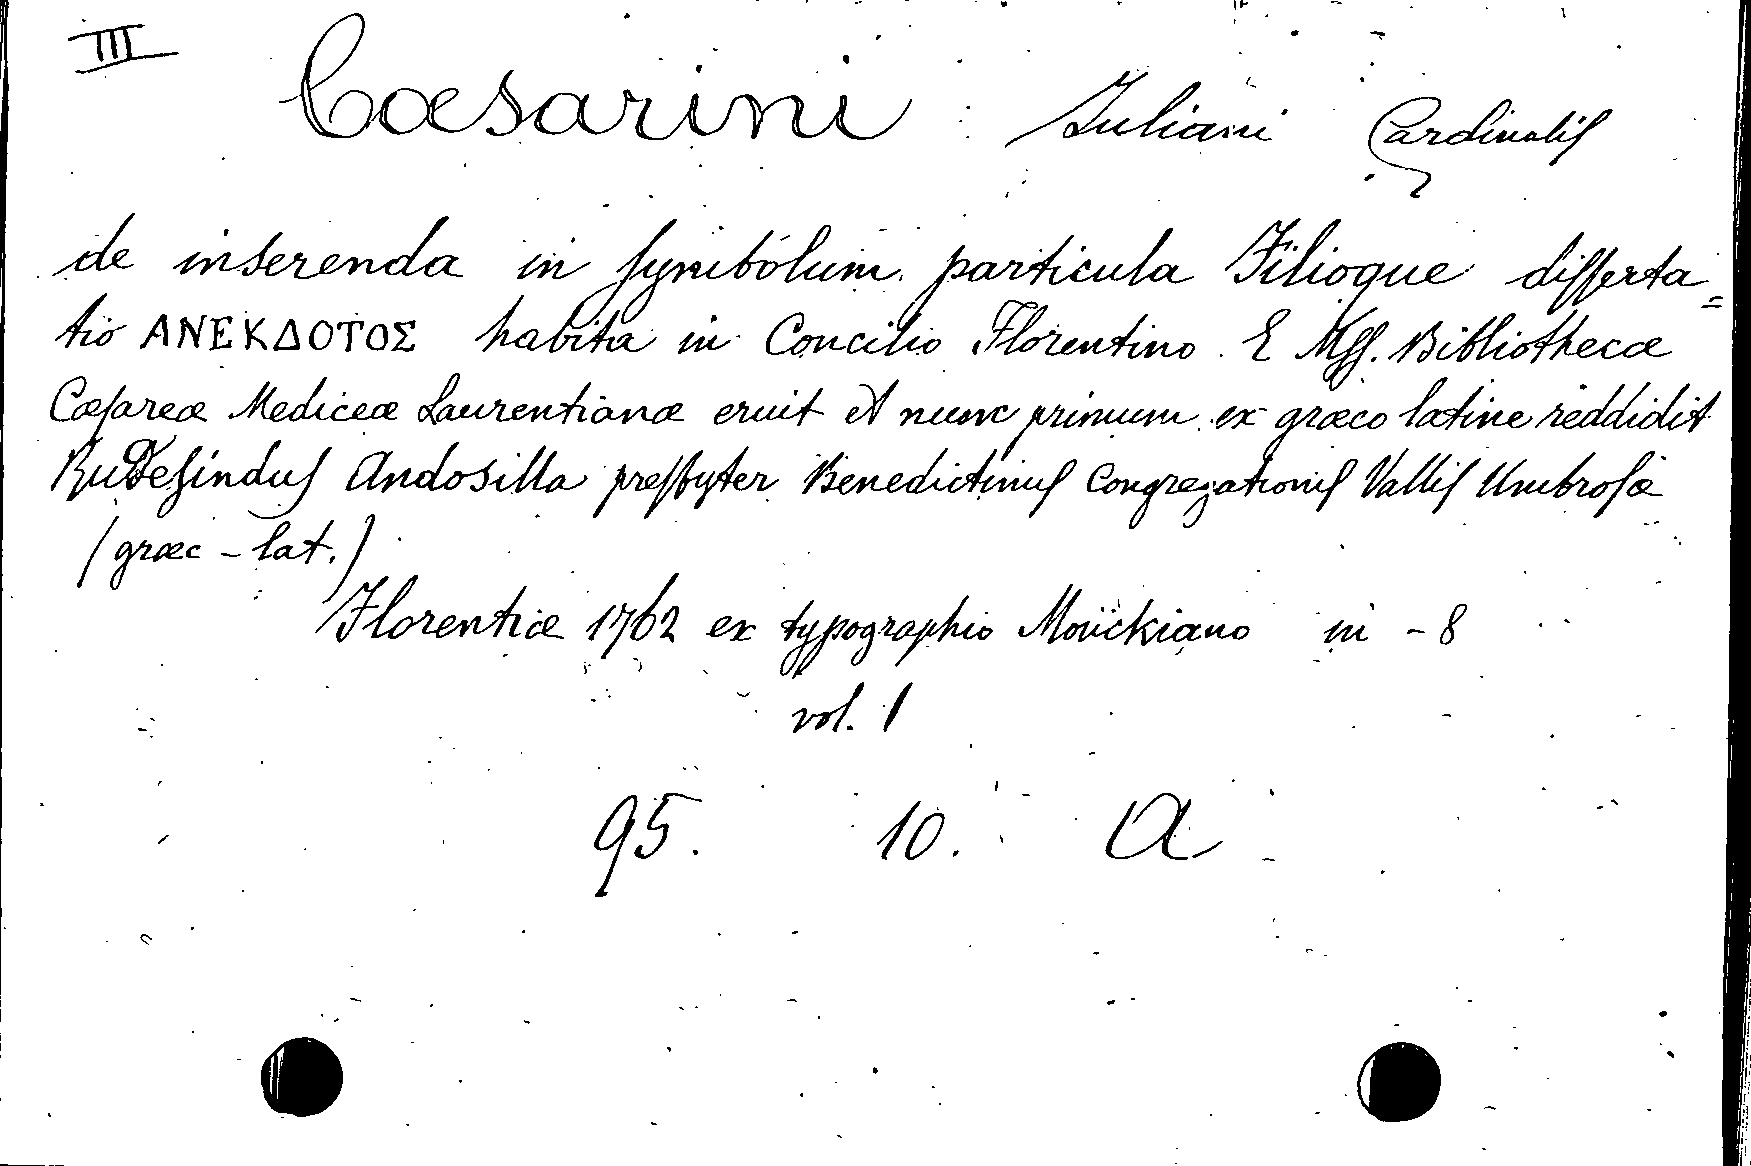 III
Cæsarini Juliani Cardinaliſ
de inserenda in ſymbolum particula Filioque diſſerta=
tio ΑΝΕΚΔΟΤΟΣ habita in Concilio Florentino. E Mſſ. Bibliothecæ
Cæſareæ Mediceæ Laurentianæ eruit et nunc primum ex græco latine reddidit
Rudeſinduſ Andosilla preſbyter Benedictinuſ Congregationiſ Valliſ Umbroſæ
(græc - lat.)
Florentiæ 1762 ex typographio Moückiano in - 8
vol. 1
95. 10. A